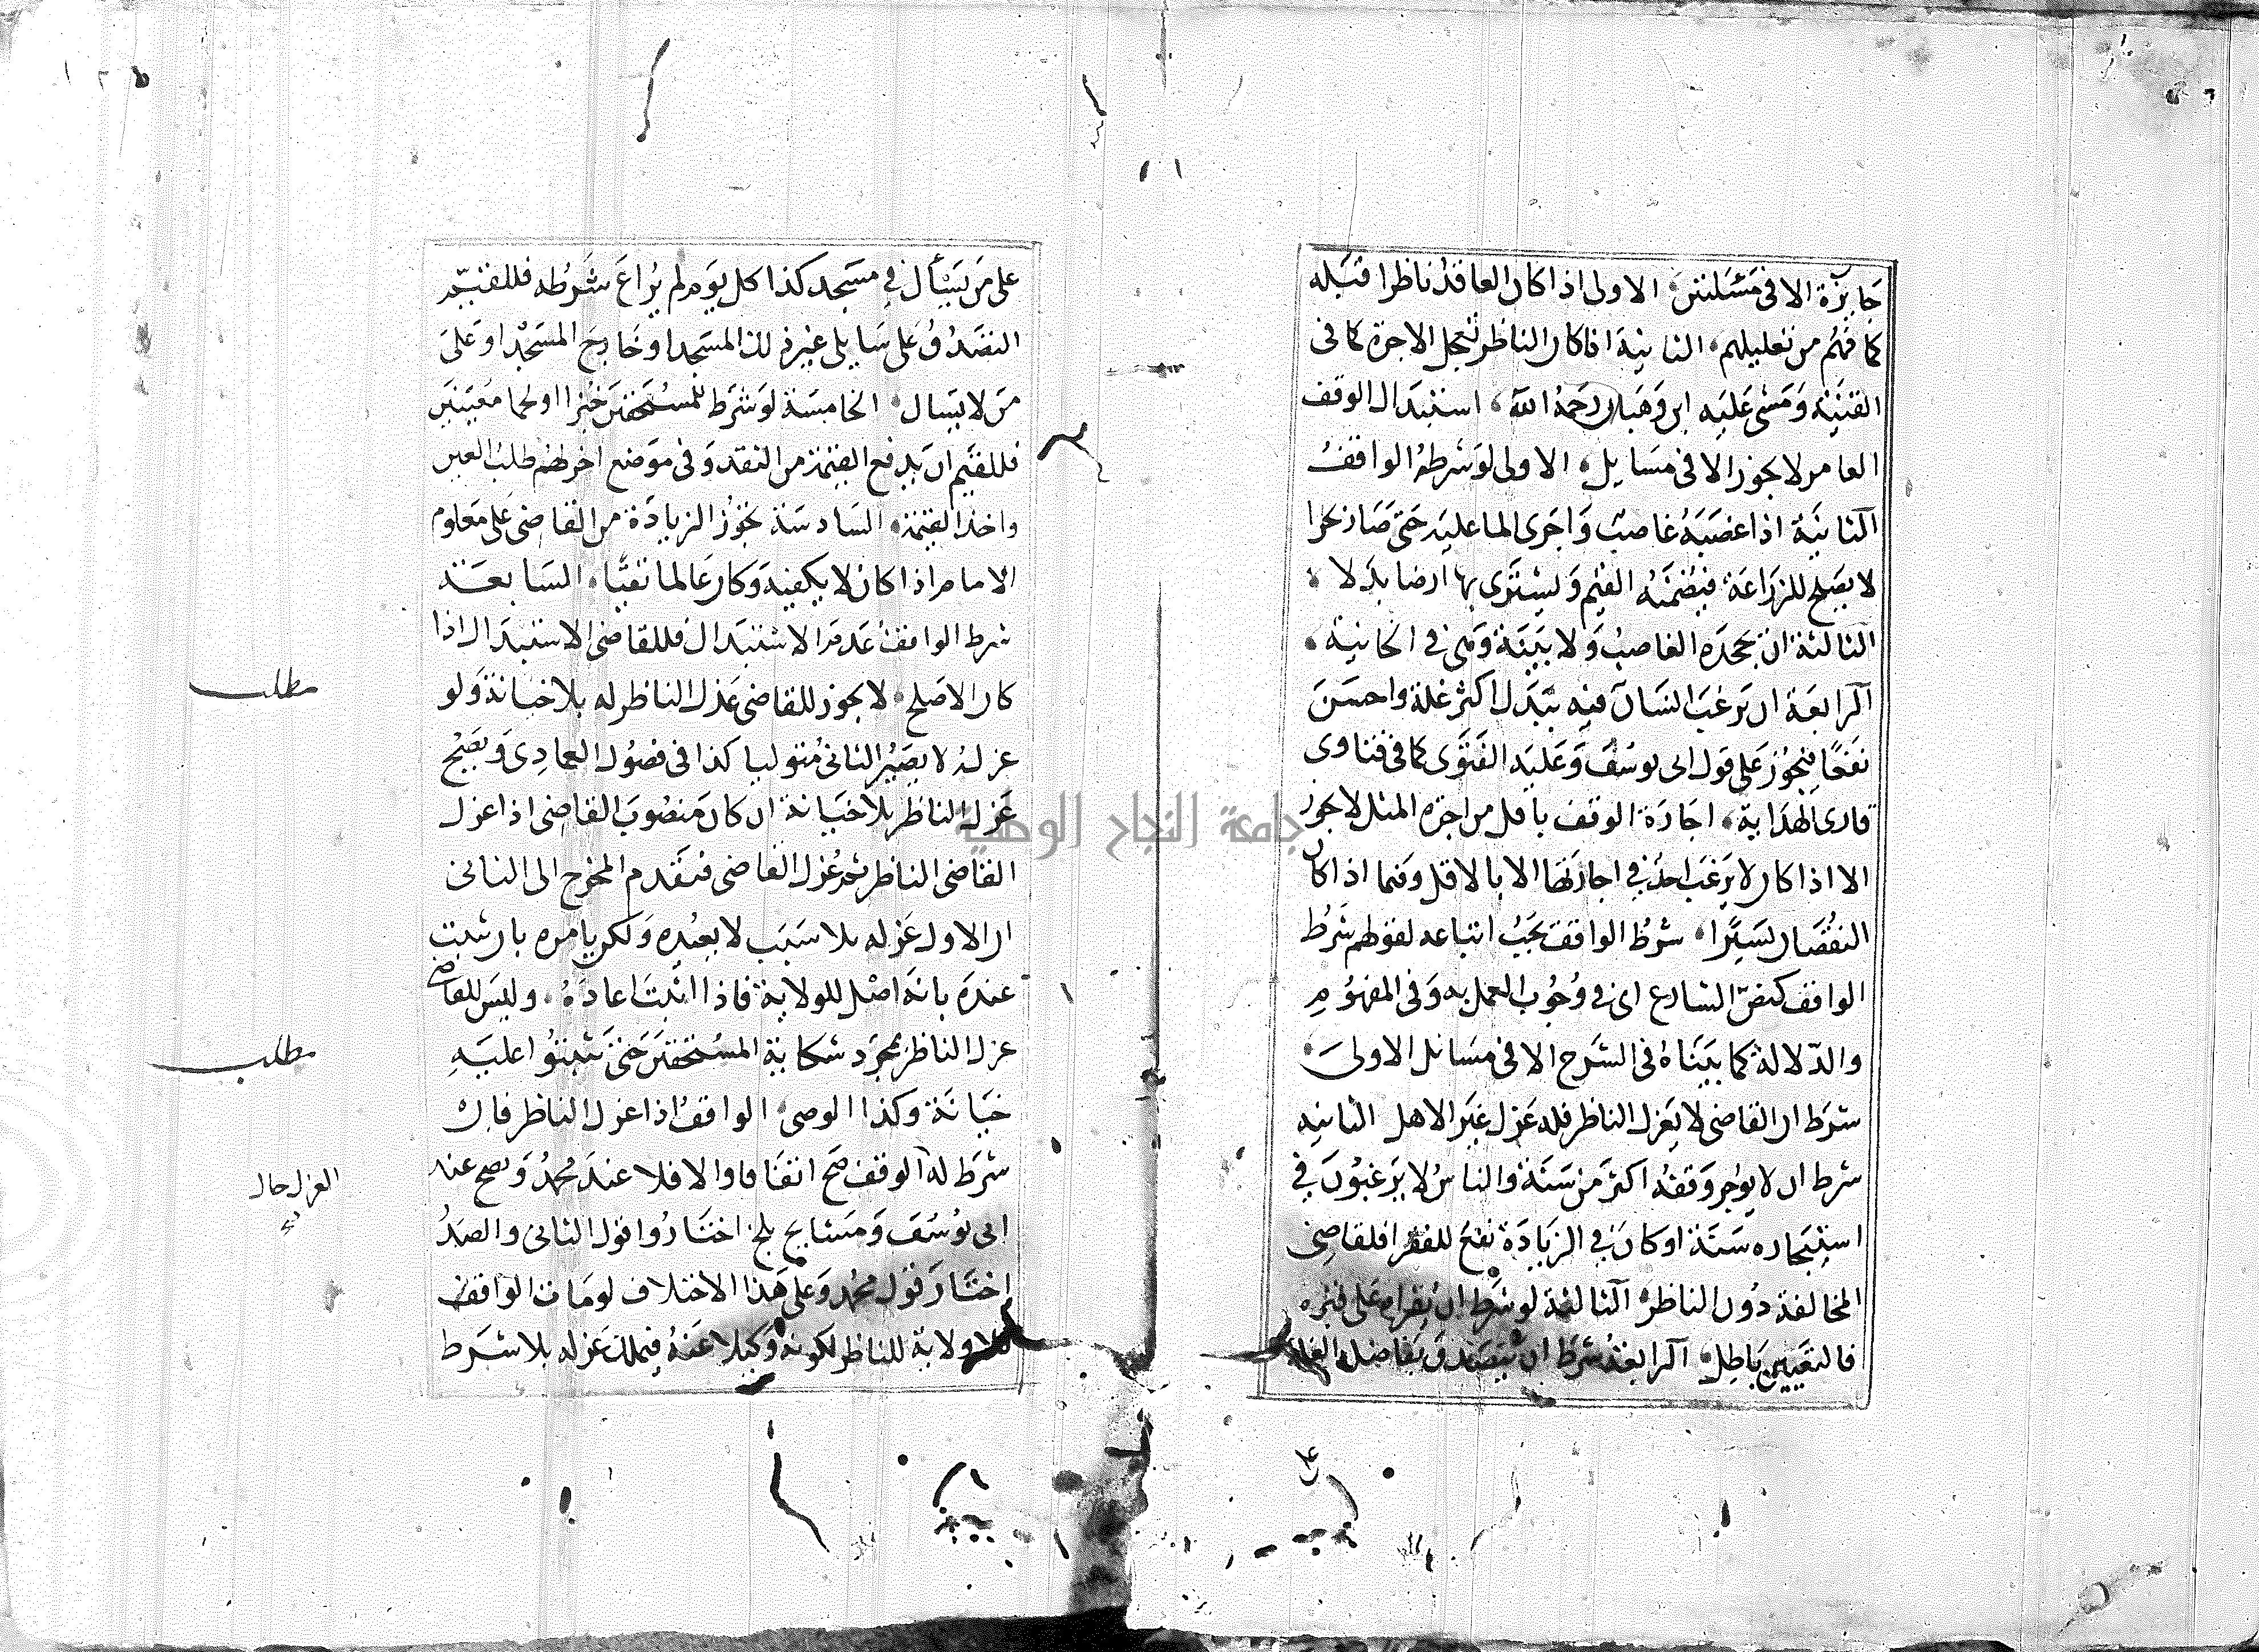 جايزة الا فى مسئلتين الاولى اذا كان العاقد ناظرا قبله
كما فهم من تعليلهم الثانية اذا كان الناظر تعجل الاجرة كما فى
القنية ومشى عليه ابن وهبان رحمه الله استبدال الوقف
العامر لا يجوز الا فى مسايل الاولى لو شرطه الواقف
الثانية اذا غصبه غاصب واجرى الما عليه حتى صار بحرا
لا يصلح للزراعة فيضمنه القيم ويشترى بها ارضا بدلا
الثالثة ان يجحده الغاصب ولا بينة وهى فى الخانية
الرابعة ان يرغب انسان فيه ببدل اكثر غلة واحسن
نفعا فيجوز على قول ابى يوسف وعليه الفتوى كما فى فتاوى
قارى الهداية اجارة الوقف باقل من اجرة المثل لا يجوز
الا اذا كان لا يرغب احد فى اجارتها الا بالاقل وفيما اذا كان
النقصان يسيرا شرط الواقف يجب اتباعه لقولهم شرط
الواقف كنص الشارع اى فى وجوب العمل به وفى المفهوم
والدلالة كما بيناه فى الشرح الا فى مسائل الاولى
شرط ان القاضى لا يعزل الناظر فله عزل غير الاهل الثانيه
شرط ان لا يوجر وقفه اكثر من سنة والناس لا يرغبون فى
استيجاره سنة او كان فى الزيادة نفع للفقرا فلقاضى
المخالفة دون الناظر الثالثة لو شرط ان يقرا على قبره
فالتعيين باطل الرابعة شرط ان يتصدق بفاضل الغلة
على من يسأل فى مسجد كذا كل يوم لم يراع شرطه فللقيم
التصدق على سايلى غير ذلك المسجد او خارج المسجد او على
من لا يسال الخامسة لو شرط للمستحقين خبزا او لحما معينين
فللقيم ان يدفع القيمة من النقد وفى موضع اخر لهم طلب العين
واخذ القيمة السادسة تجوز الزيادة من القاضى على معلوم
الامام اذا كان لا يكفيه وكان عالما تقيا السابعة
شرط الواقف عدم الاستبدال فللقاضى الاستبدال اذا
كان الاصلح لا يجوز للقاضى عزل الناظر له بلا خيانة ولو
عزله لا يصير الثانى متوليا كذا فى فصول العمادى ويصح
عزل الناظر بلا خيانة ان كان منصوب القاضى اذا عزل
القاضى الناظر ثم عزل القاضى فتقدم المخرج الى الثانى
ان الاول عزله بلا سبب لا يعيده ولكن يامره بان يثبت
عنده بانه اهل للولاية فاذا اثبت اعاده وليس للقاضى
عزل الناظر بمجرد شكاية المستحقين حتى يثبتوا عليه
خيانة وكذا الوصى الواقف اذا عزل الناظر فان
شرط له الوقف صح اتفاقا والا فلا عند محمد ويصح عند
ابى يوسف ومشايخ بلخ اختاروا قول الثانى والصدر
اختار قول محمد وعلى هذا الاختلاف لو مات الواقف
فلا ولاية للناظر لكونه وكيلا عنه فيملك عزله بلا شرط
مطلب
مطلب
العزل حال
جامعة النجاح الوطنية